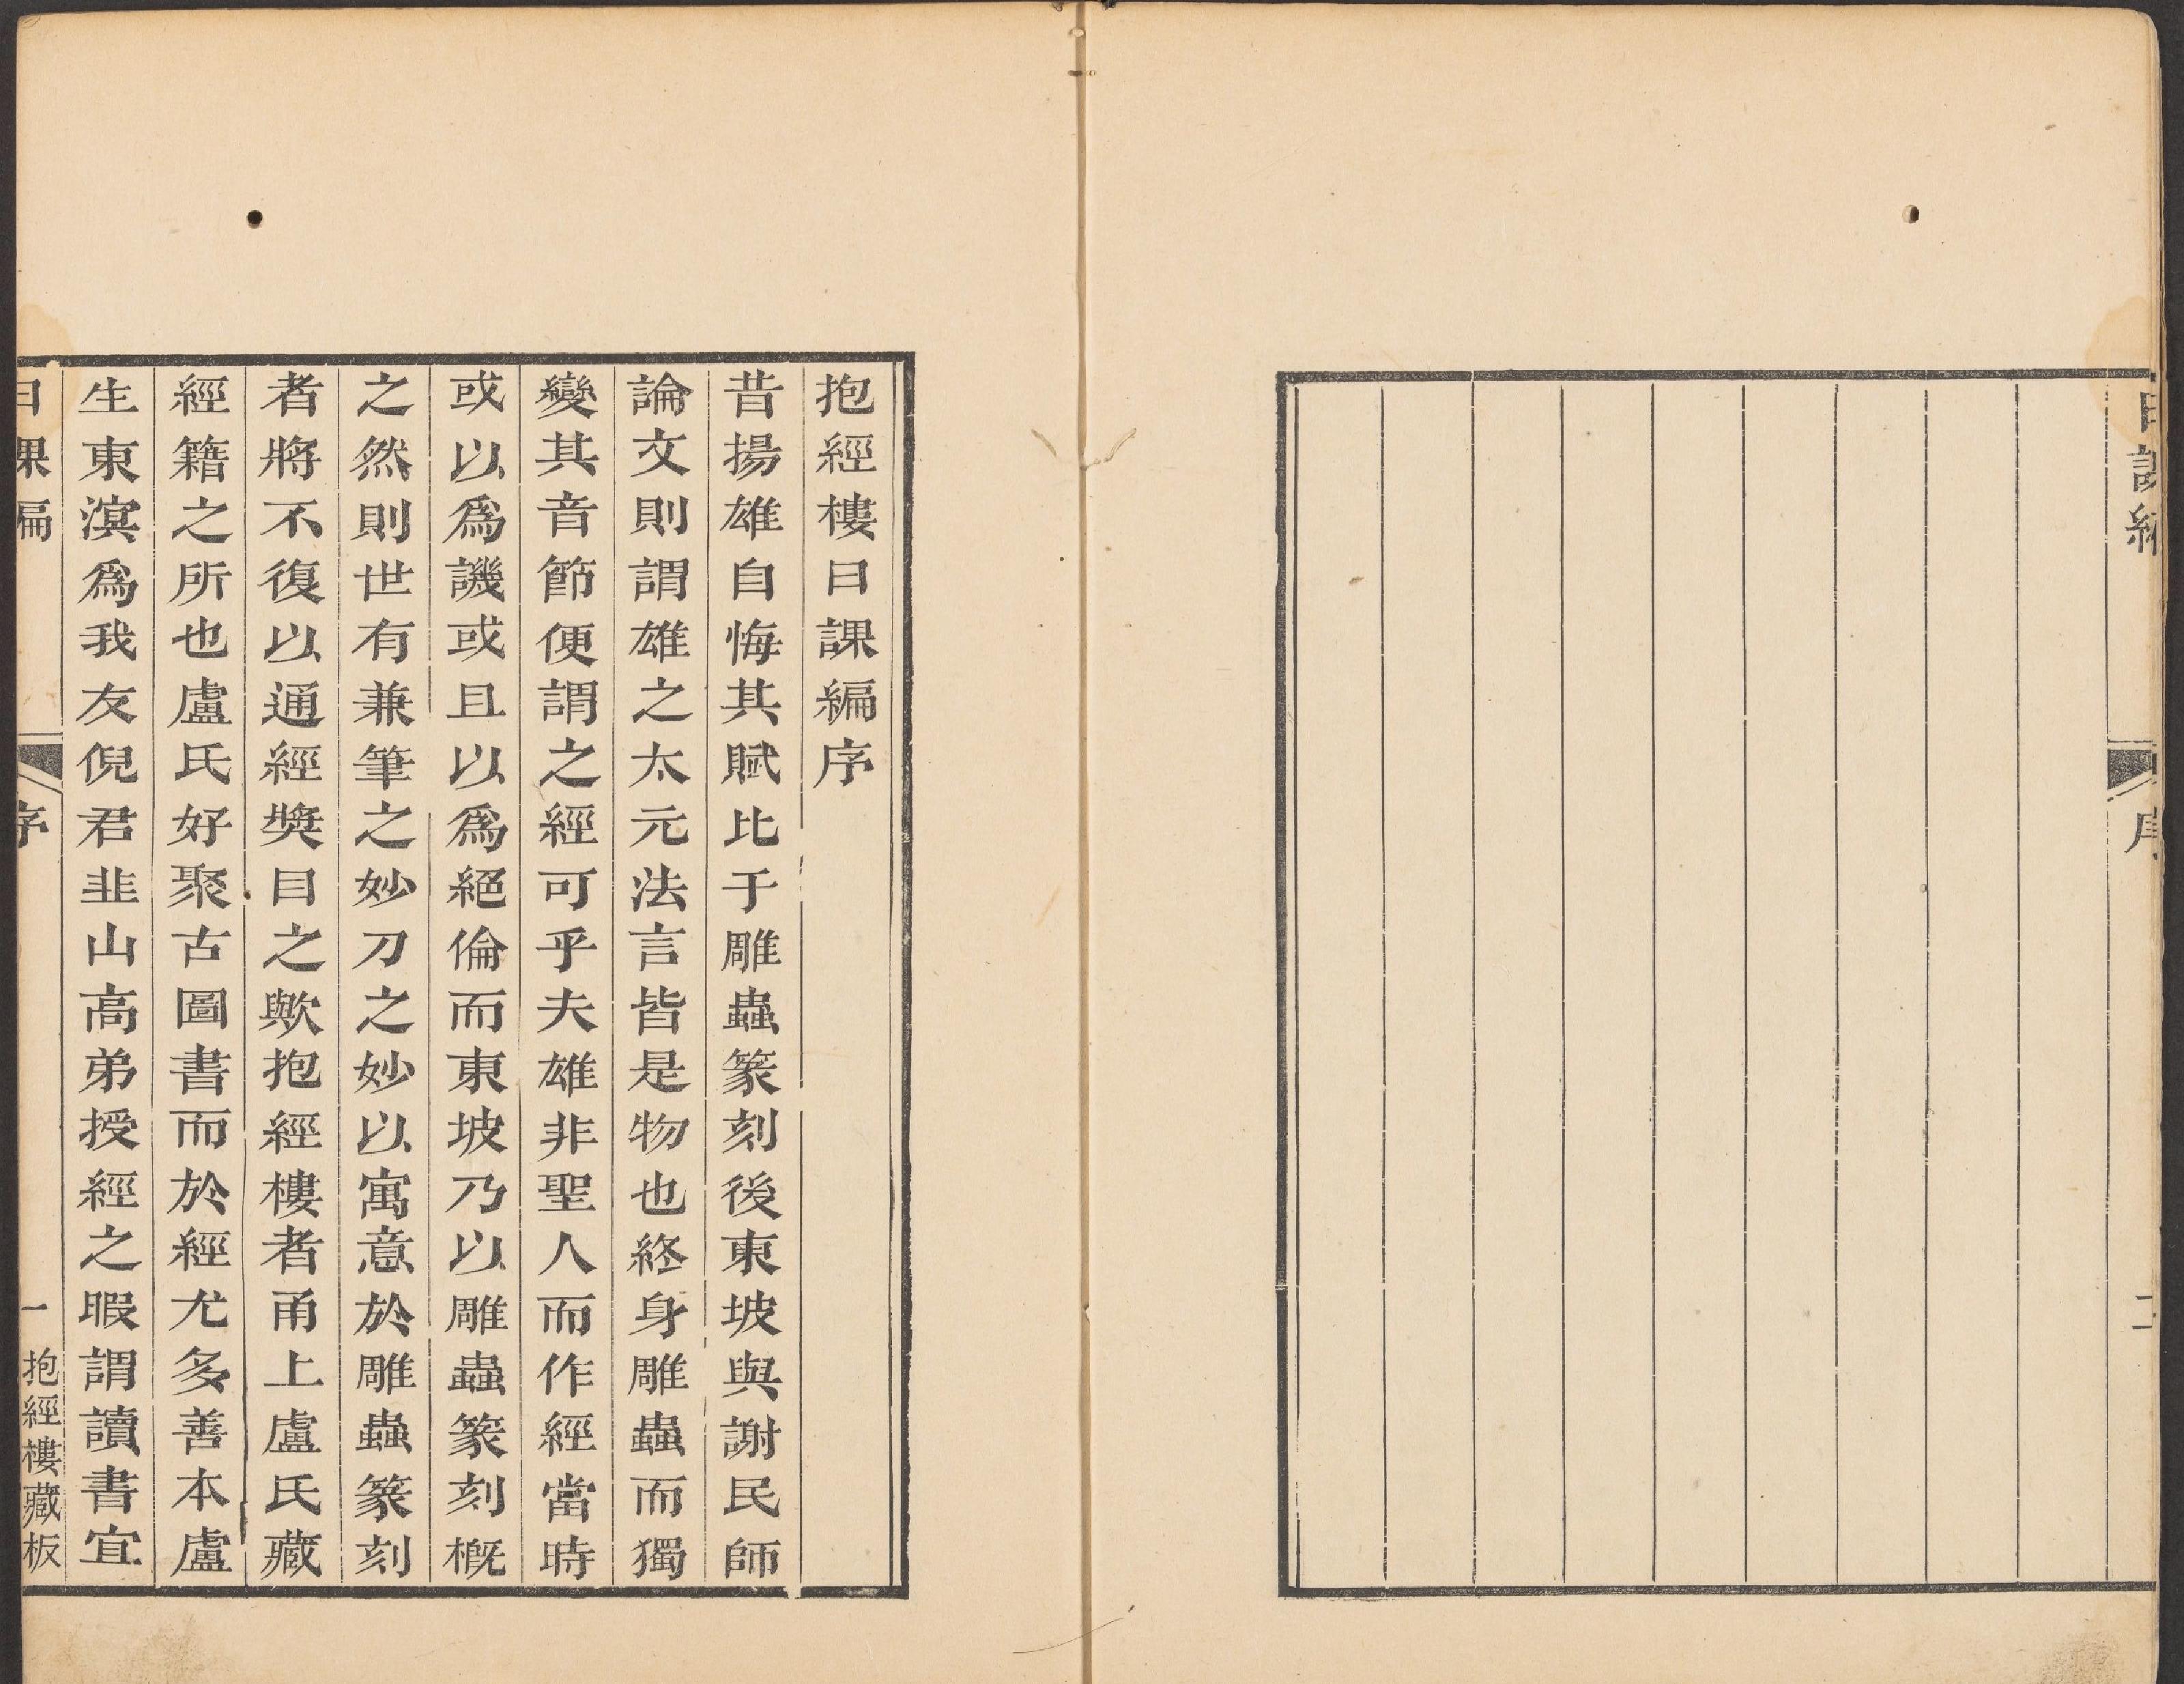 日課編
序
二
抱經樓日課編序
昔揚雄自悔其賦比于雕蟲篆刻後東坡與謝民師
論文則謂雄之太元法言皆是物也終身雕蟲而獨
變其音節便謂之經可乎夫雄非聖人而作經當時
或以爲譏或且以爲絕倫而東坡乃以雕蟲篆刻概
之然則世有兼筆之妙刀之妙以寓意於雕蟲篆刻
者將不復以通經奬目之歟抱經樓者甬上盧氏藏
經籍之所也盧氏好聚古圖書而於經尤多善本盧
生東溟爲我友倪君韭山高弟授經之暇謂讀書宜
日課編
序
一
抱經樓藏板